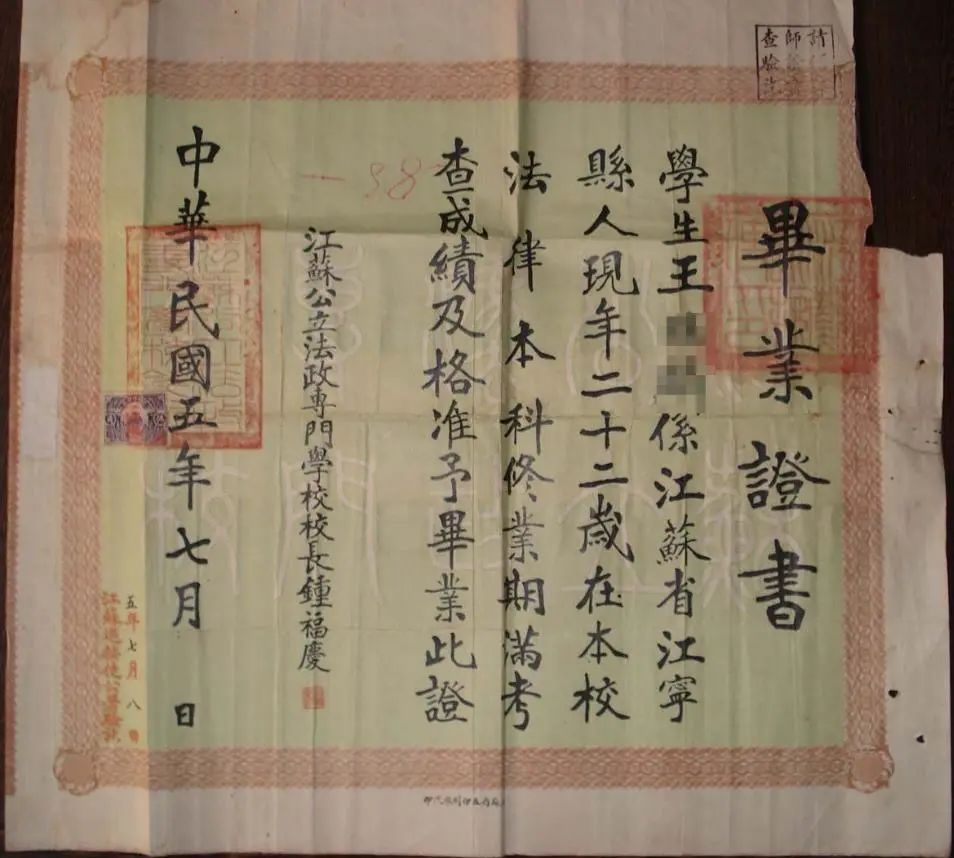 畢業證書
學生王係江蘇省江寧
縣人現年二十二歲在本校
法律本科修業期滿考
查成績及格准予畢業此證
江蘇公立法政專門學校校長鍾福慶
中華民國五年七月 日
五年七月八日
98